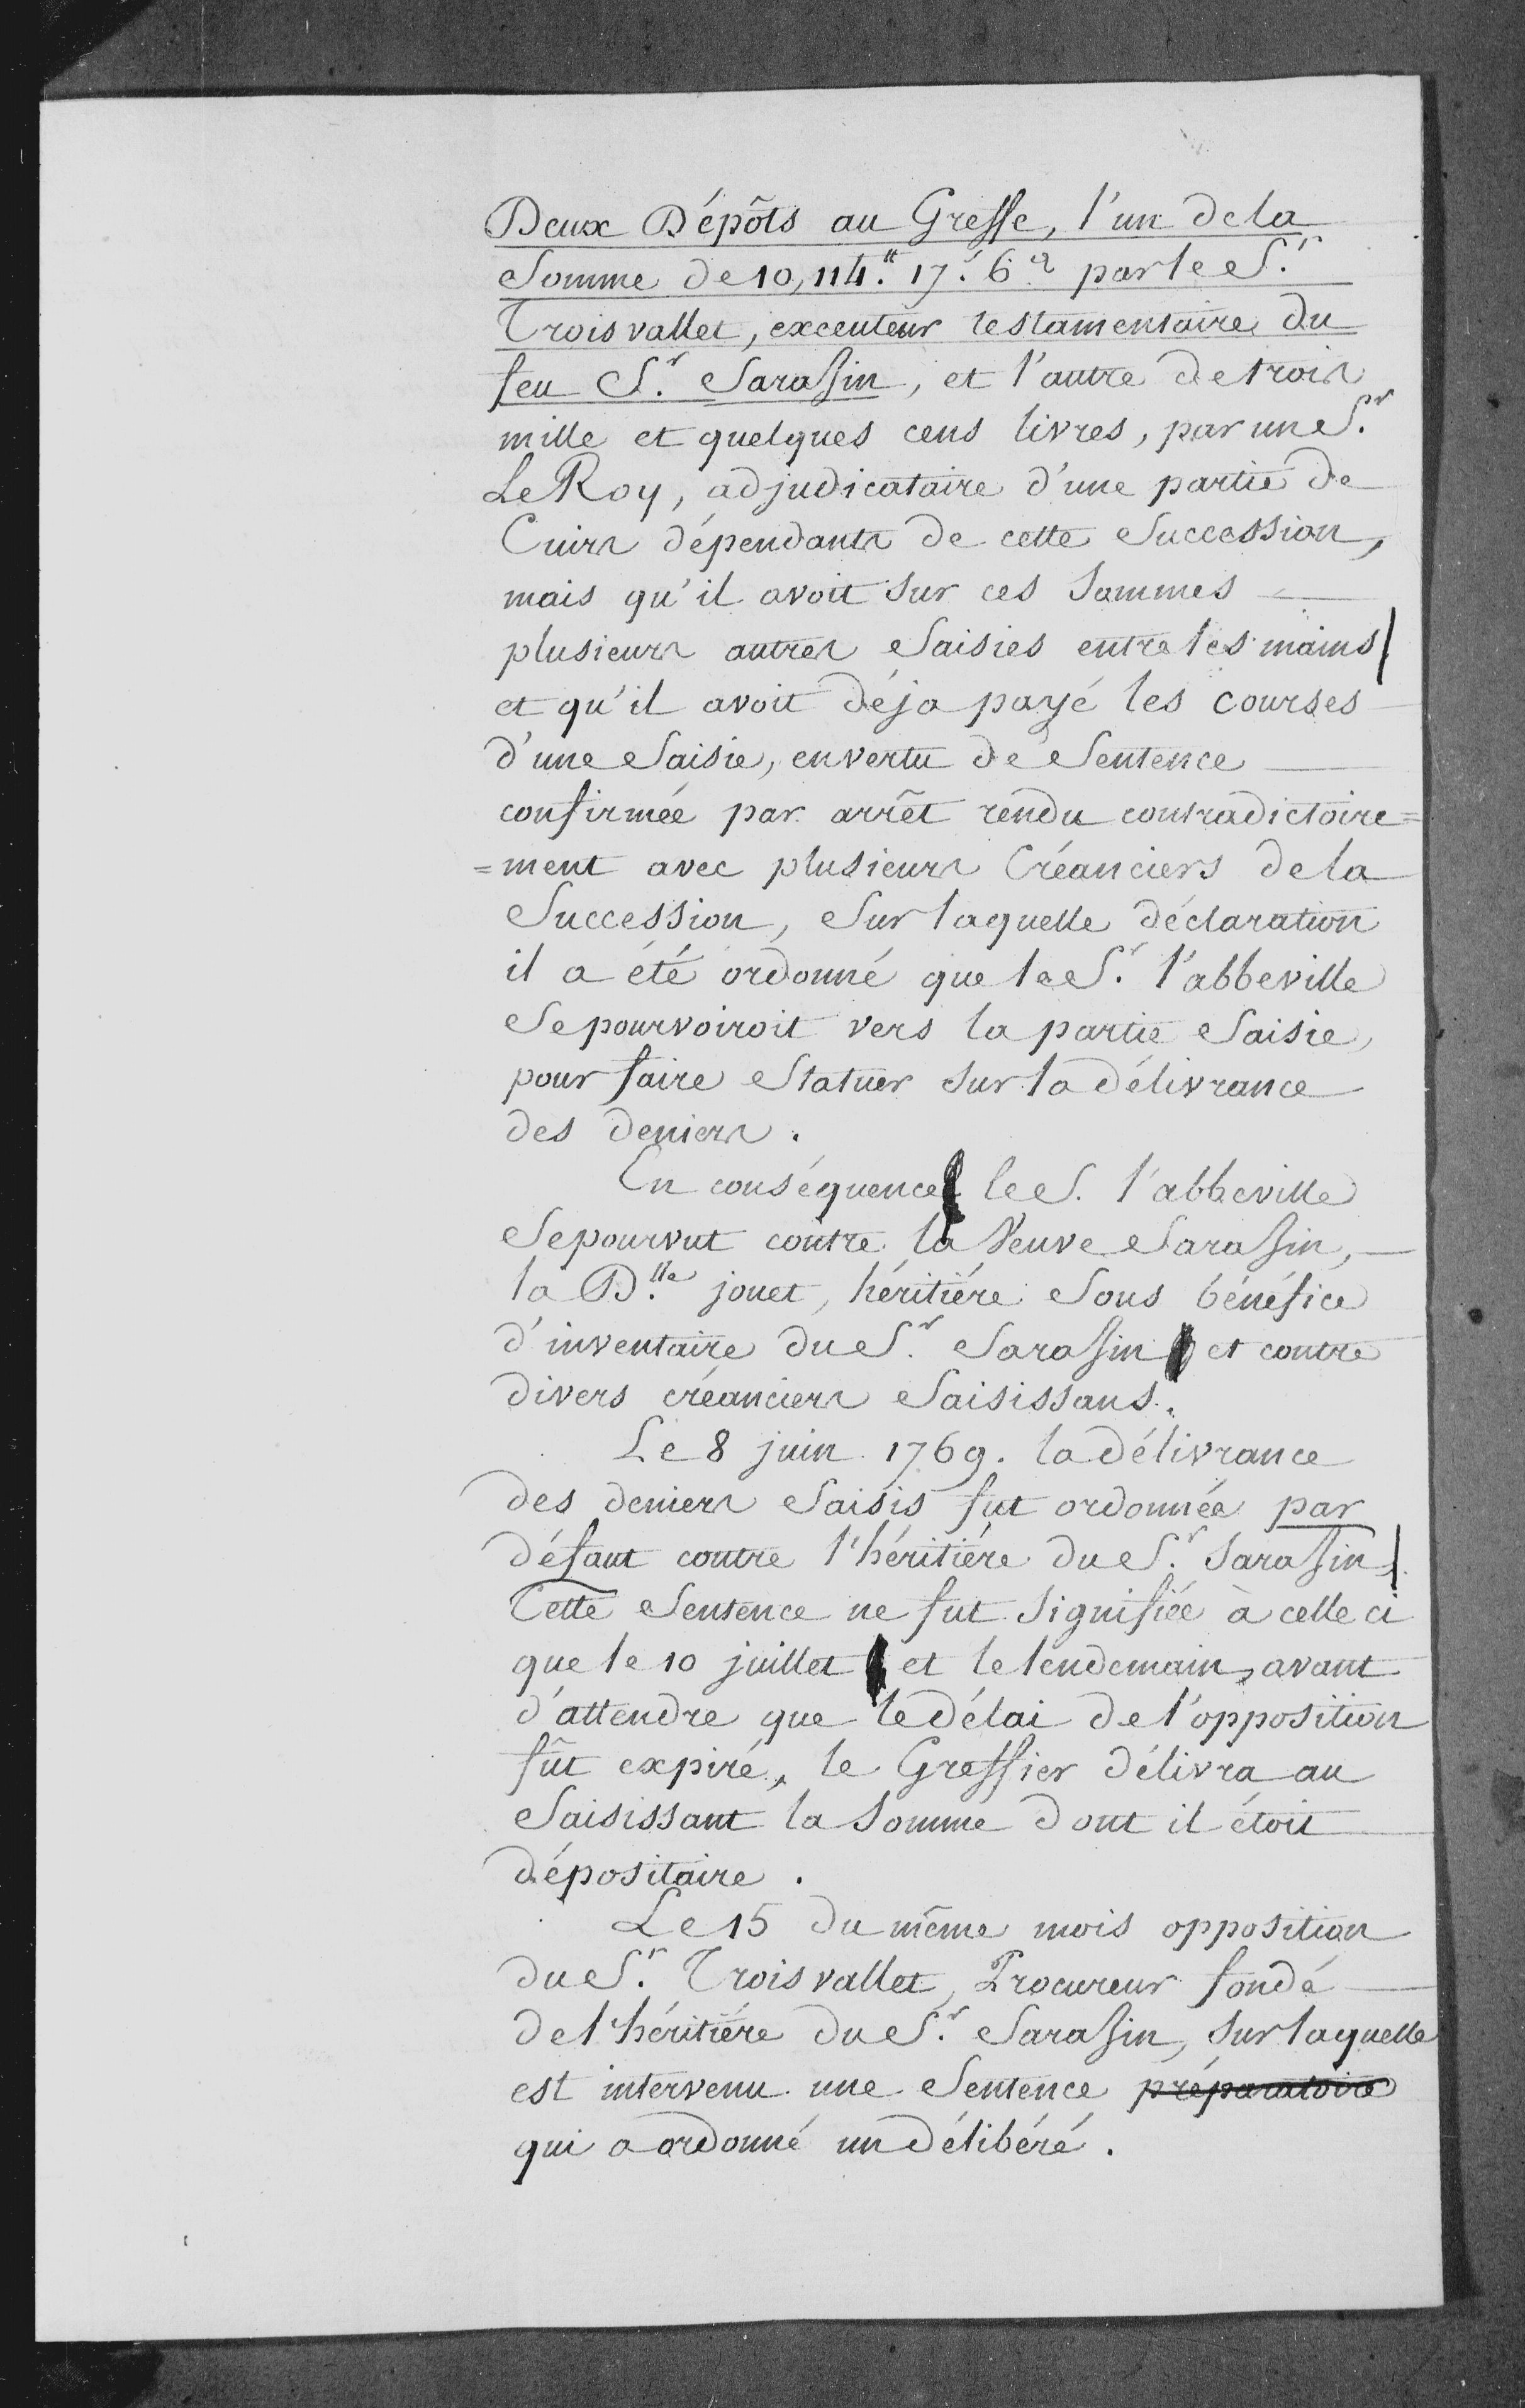 Deux Dépôts au Greffe, l'un de la
Somme de 10,114.tt 17.s 6.d par le S.r
Troisvallet, executeur testamentaire du
feu S.r Sarasin, et l'autre de trois
mille et quelques cens livres, par un S.r
Le Roy, adjudicataire d'une partie de
Cuirs dépendants de cette Succession,
mais qu'il avoit sur ces sommes
plusieurs autres Saisies entre les mains
et qu'il avoit déja payé les courses
d'une Saisie, en vertu de Sentence
confirmée par arrêt rendu contradictoire=
=ment avec plusieurs Créanciers de la
Succession, Sur laquelle déclaration
il a été ordonné que le S.r l'abbeville
Se pourvoiroit vers la partie Saisie,
pour faire Statuer sur la délivrance
des deniers.
En conséquence le S. l'abbeville
Se pourvut contre la Veuve Sarasin,
la D.lle jouet, héritiére Sous bénéfice
d'inventaire du S.r Sarasin et contre
divers créanciers Saisissans.
Le 8 juin 1769. la délivrance
des deniers Saisis fut ordonnée par
défaut contre l'héritiére du S.r Sarasin.
Cette Sentence ne fut signifiée à celle ci
que le 10 juillet et le lendemain, avant
d'attendre que le délai de l'opposition
fût expiré, le Greffier délivra au
Saisissant la somme dont il étoit
dépositaire.
Le 15 du même mois opposition
du S.r Troisvallet, Procureur fondé
de l'héritiére du S.r Sarasin, sur laquelle
est intervenu une Sentence préparatoire
qui a ordonné un délibéré.